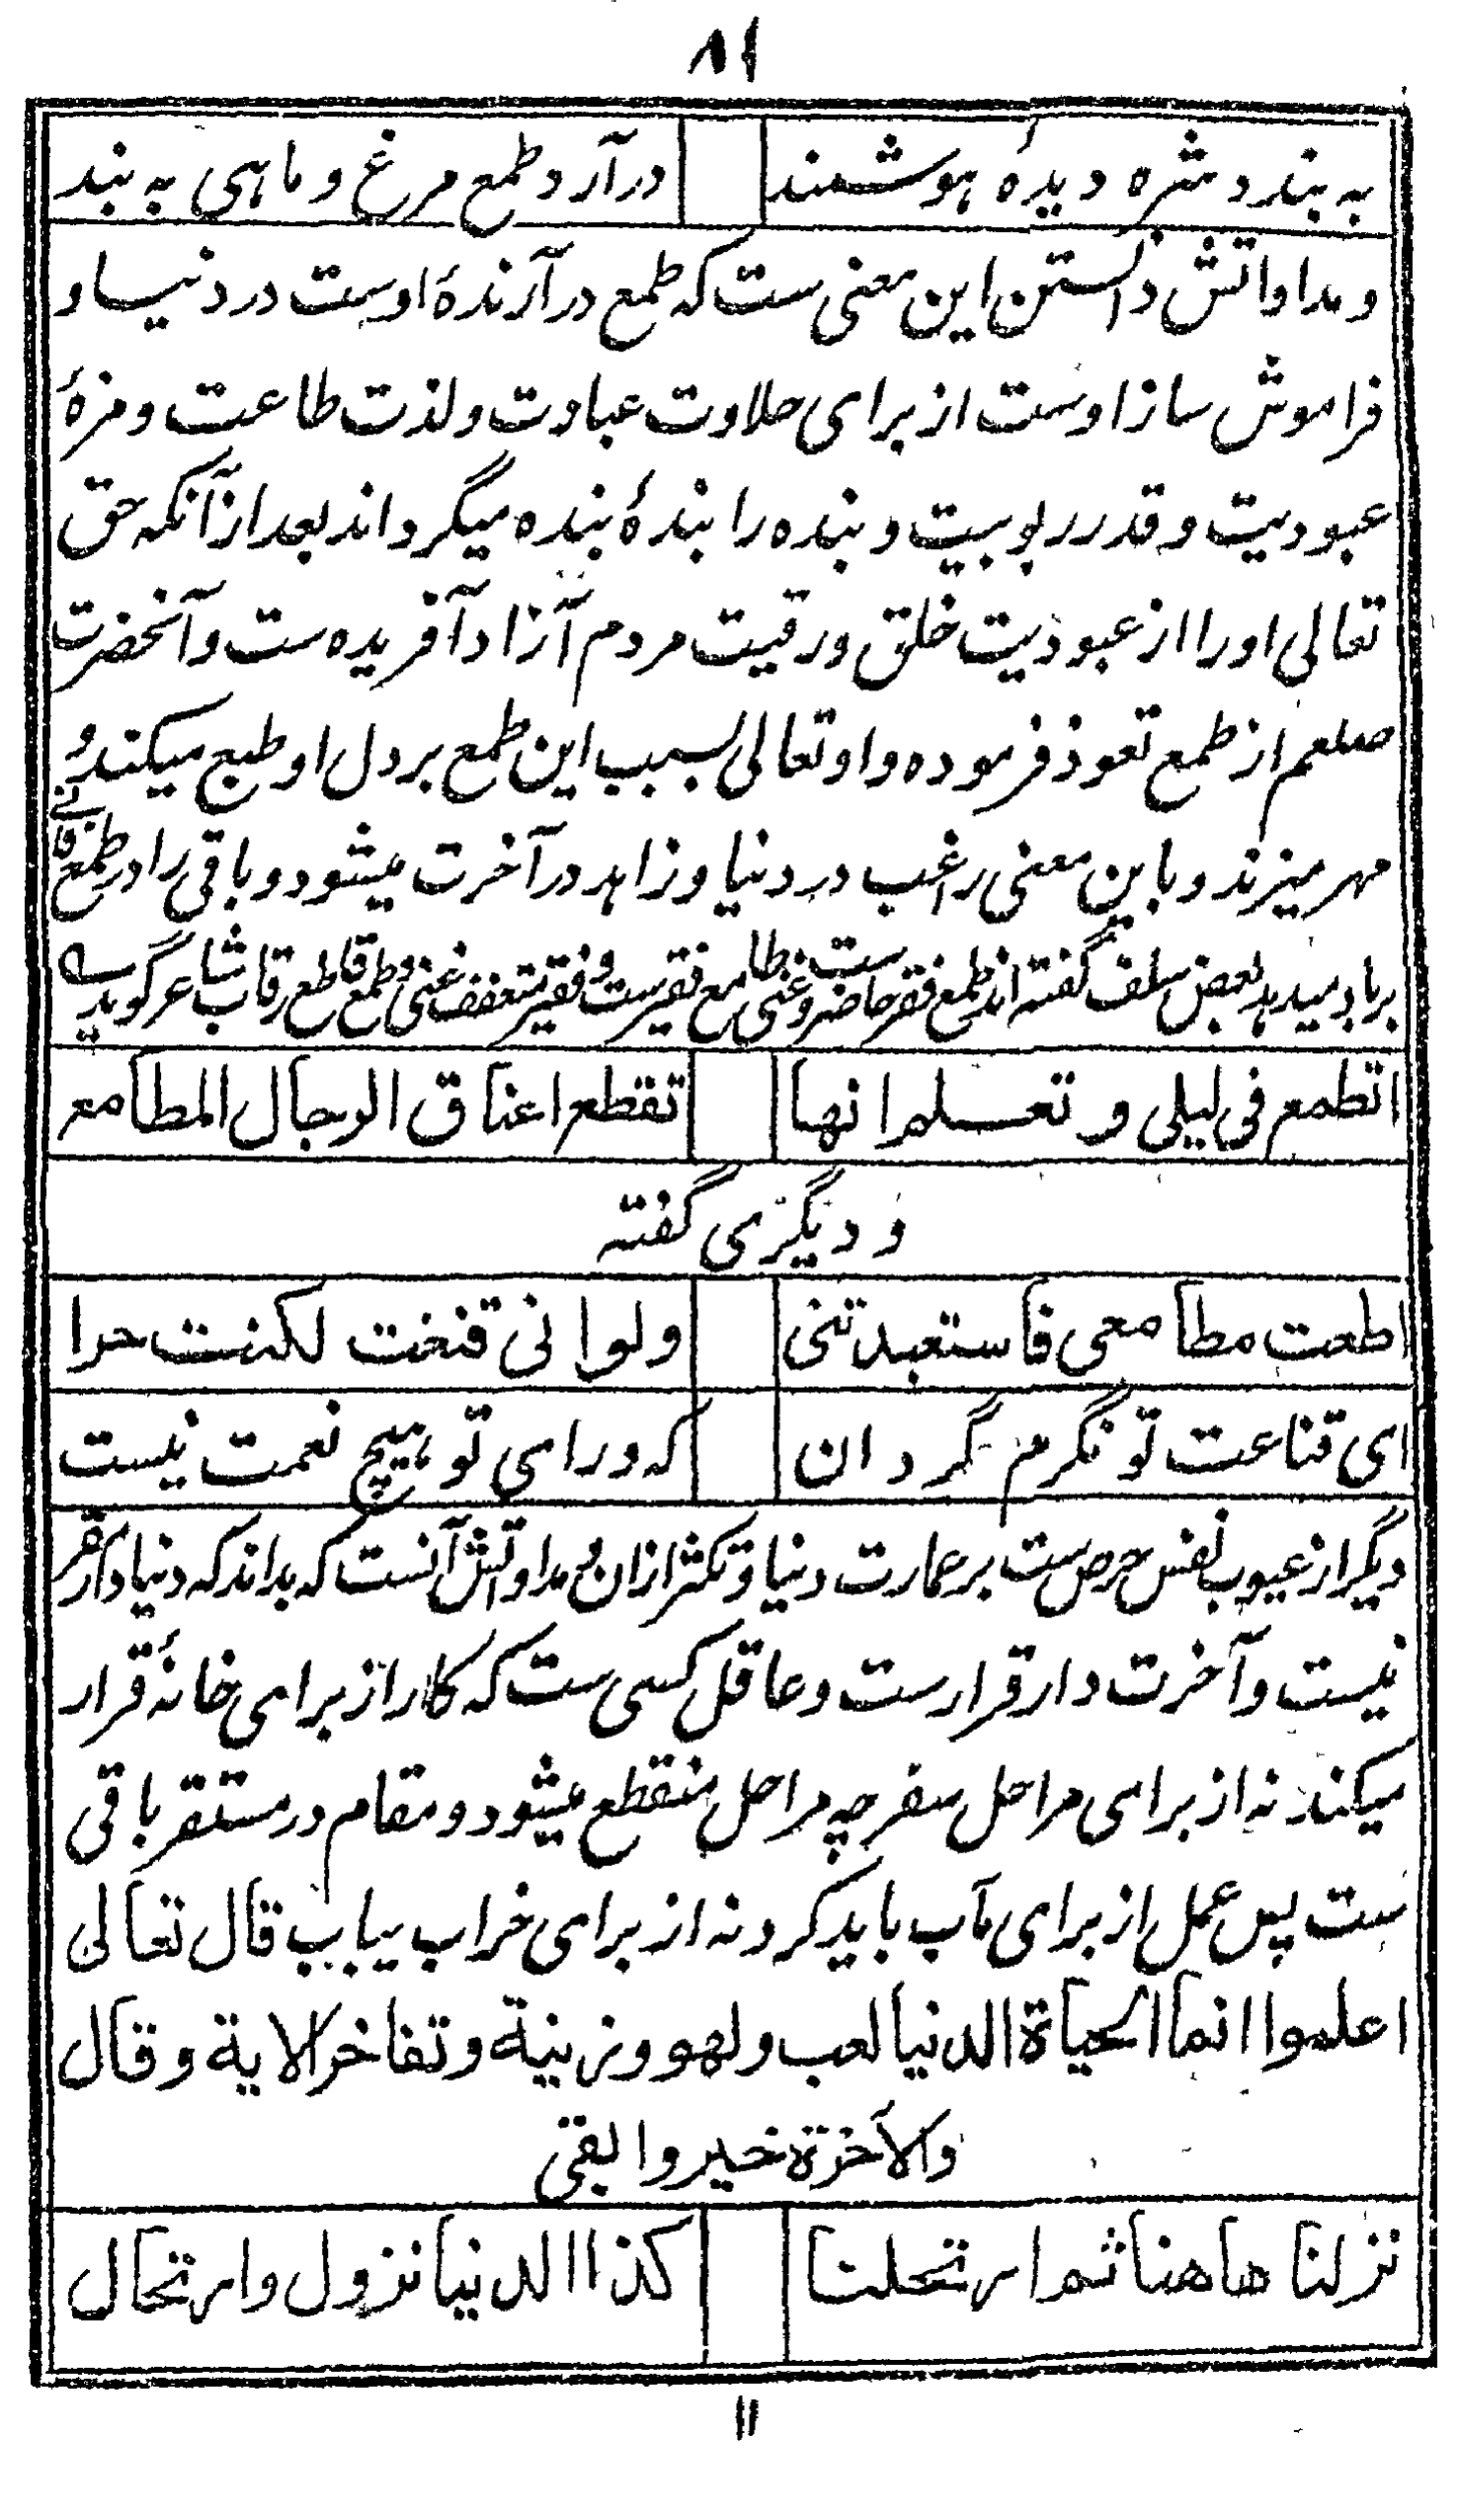 ۸۱
به بندد شره دیدهٔ هوشمند درآرد طمع مرغ و ماهی به بند
و مداواتش دانستن این معنی ست که طمع درآرندهٔ اوست در دنیا و
فراموش ساز اوست از برای حلاوت عبادت و لذت طاعت و مزهٔ
عبودیت و قدر ربوبیت و بنده را بندهٔ بنده میگرداند بعد از آنکه حق
تعالی او را از عبودیت خلق و رقیت مردم آزاد آفریده ست و آنحضرت
صلعم از طمع تعوذ فرموده و او تعالی بسبب این طمع بر دل او طبع میکند و
مهر میزند و باین معنی راغب در دنیا و زاهد در آخرت میشود و باقی را در طمع فانی
برباد میدهد بعض سلف گفته اند طمع فقر حاضر ست و غنی طامع فقیرست و فقیر متعفف غنی و طمع قاطع رقاب شاعر گوید
اتطمع فی لیلی و تعلم انها تقطع اعناق الرجال المطامع
و دیگری گفته
اطعت مطامعی فاستعبدتنی ولو انی قنعت لکنت حرا
ای قناعت توانگرم گردان که ورای تو هیچ نعمت نیست
دیگر از عیوب نفس حرص ست بر عمارت دنیا و تکثر از ان و مداواتش آنست که بداند که دنیا دار قرار
نیست و آخرت دار قرارست و عاقل کسی ست که کار از برای خانهٔ قرار
میکند نه از برای مراحل سفر چه مراحل منقطع میشود و مقام در مستقر باقی
ست پس عمل از برای مآب باید کرد نه از برای خراب یباب قال تعالی
اعلموا انما الحیاة الدنیا لعب ولهو وزینة وتفاخر الایة وقال
والآخرة خیر وابقی
نزلنا هاهنا ثم ارتحلنا کذا الدنیا نزول وارتحال
۱۱